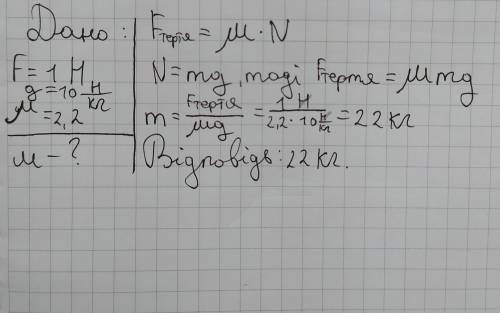 Дано:
F = 1 Н
g = 10 Н/кг
μ = 2,2
м - ?
Fтертя = μ · N
N = mg, тоді Fтертя = μmg
m = Fтертя/μg = 1 Н/2,2 · 10 Н/кг = 22 кг
Відповідь: 22 кг.